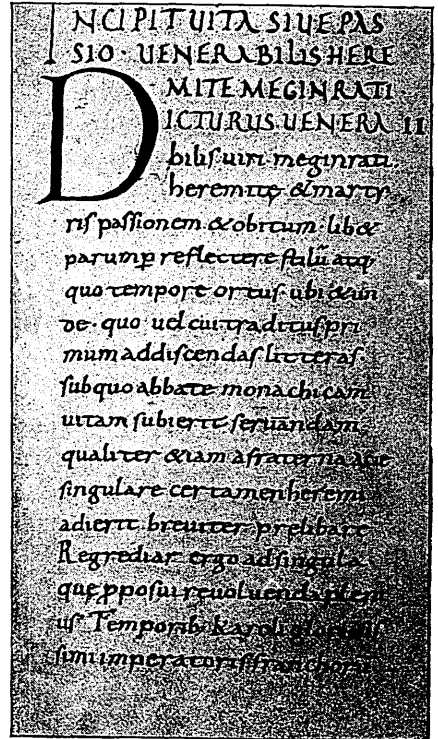 INCIPIT UITA SIUE PAS
SIO · UENERABILIS HERE
MITE MEGINRATI
DICTURUS UENERA II
bilis uiri meginrati.
heremitę & martÿ
ris passionem & obitum · lib&
parump̄ reflectere stilū atq·
quo tempore ortus · ubi & un
de · quo uel cui traditus pri
mum addiscendas litteras ·
sub quo abbate monachicam
uitam subierit seruandam ·
qualiter & iam a fraterna acie
singulare certamen heremi
adierit breuiter prelibare
Regrediar ergo ad singula
quę ꝓposui reuoluenda pleni
us Temporib· karoli gloriosis
simi imperatoris franchorū